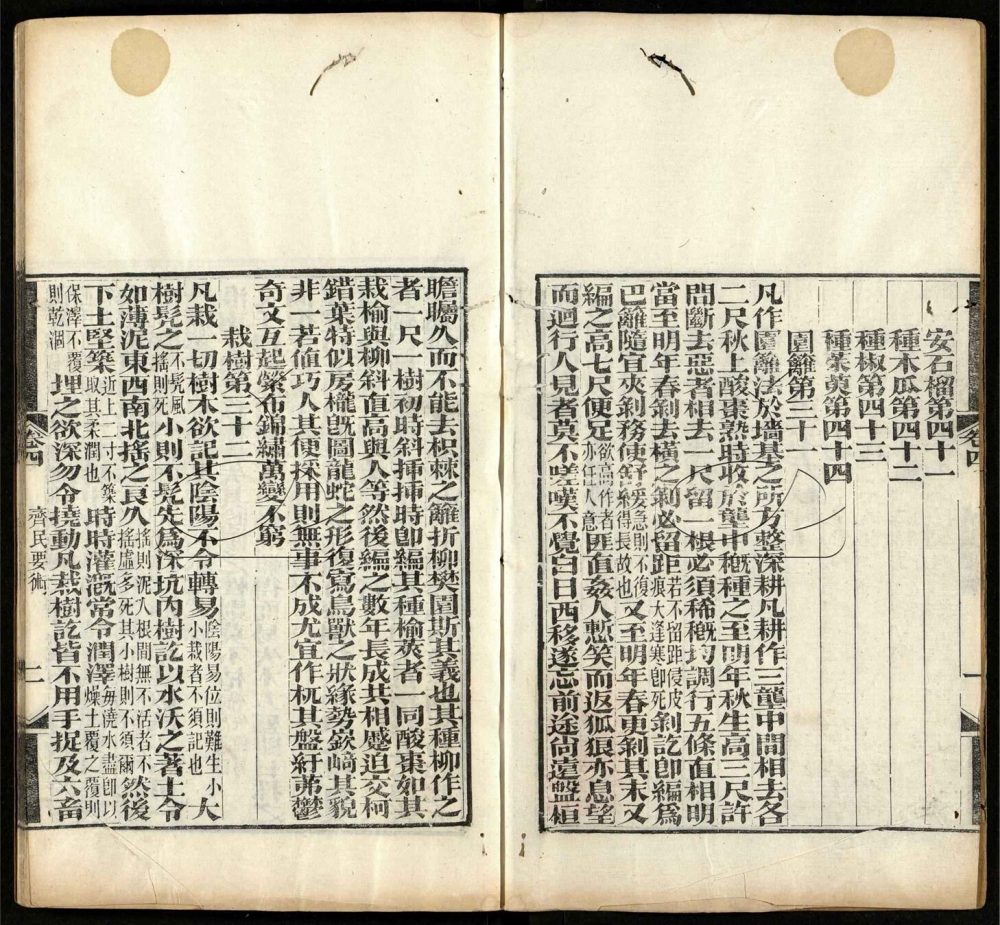 安石榴第四十一
種木瓜第四十二
種椒第四十三
種茱萸第四十四
園籬第三十一
凡作園籬法於墻基之所方整深耕凡耕作三壟中間相去各
二尺秋上酸棗熟時收於壟中穊種之至明年秋生高三尺許
間斷去惡者相去一尺留一根必須稀穊均調行五條直相明
當至明年春剝去橫之剝必留距若不留距侵皮痕大逢寒卽死剝訖卽編爲
巴籬隨宜夾剝務使舒緩急則不復得長故也又至明年春更剝其末又
編之高七尺便足欲高作者亦任人意匪直姦人慙笑而返狐狼亦息望
而迴行人見者莫不嗟嘆不覺白日西移遂忘前途尙遠盤桓
瞻矚久而不能去枳棘之籬折柳樊圃斯其義也其種柳作之
者一尺一樹初時斜插插時卽編其種榆莢者一同酸棗如其
栽榆與柳斜直高與人等然後編之數年長成共相蹙迫交柯
錯葉特似房櫳旣圖龍蛇之形復寫鳥獸之狀緣勢嶔崎其貌
非一若値巧人其便採用則無事不成尤宜作杌其盤紆茀鬱
奇文互起縈布錦繡萬變不窮
栽樹第三十二
凡栽一切樹木欲記其陰陽不令轉易陰陽易位則難生小小栽者不須記也大
樹髡之不髡風搖則死小則不髡先爲深坑內樹訖以水沃之著土令
如薄泥東西南北搖之良久搖則泥入根間無不活者不搖虛多死其小樹則不須爾然後
下土堅築近上三寸不築取其柔潤也時時灌溉常令潤澤每澆水盡卽以燥土覆之覆則
保澤不覆則乾涸埋之欲深勿令撓動凡栽樹訖皆不用手捉及六畜
卷四
齊民要術
二